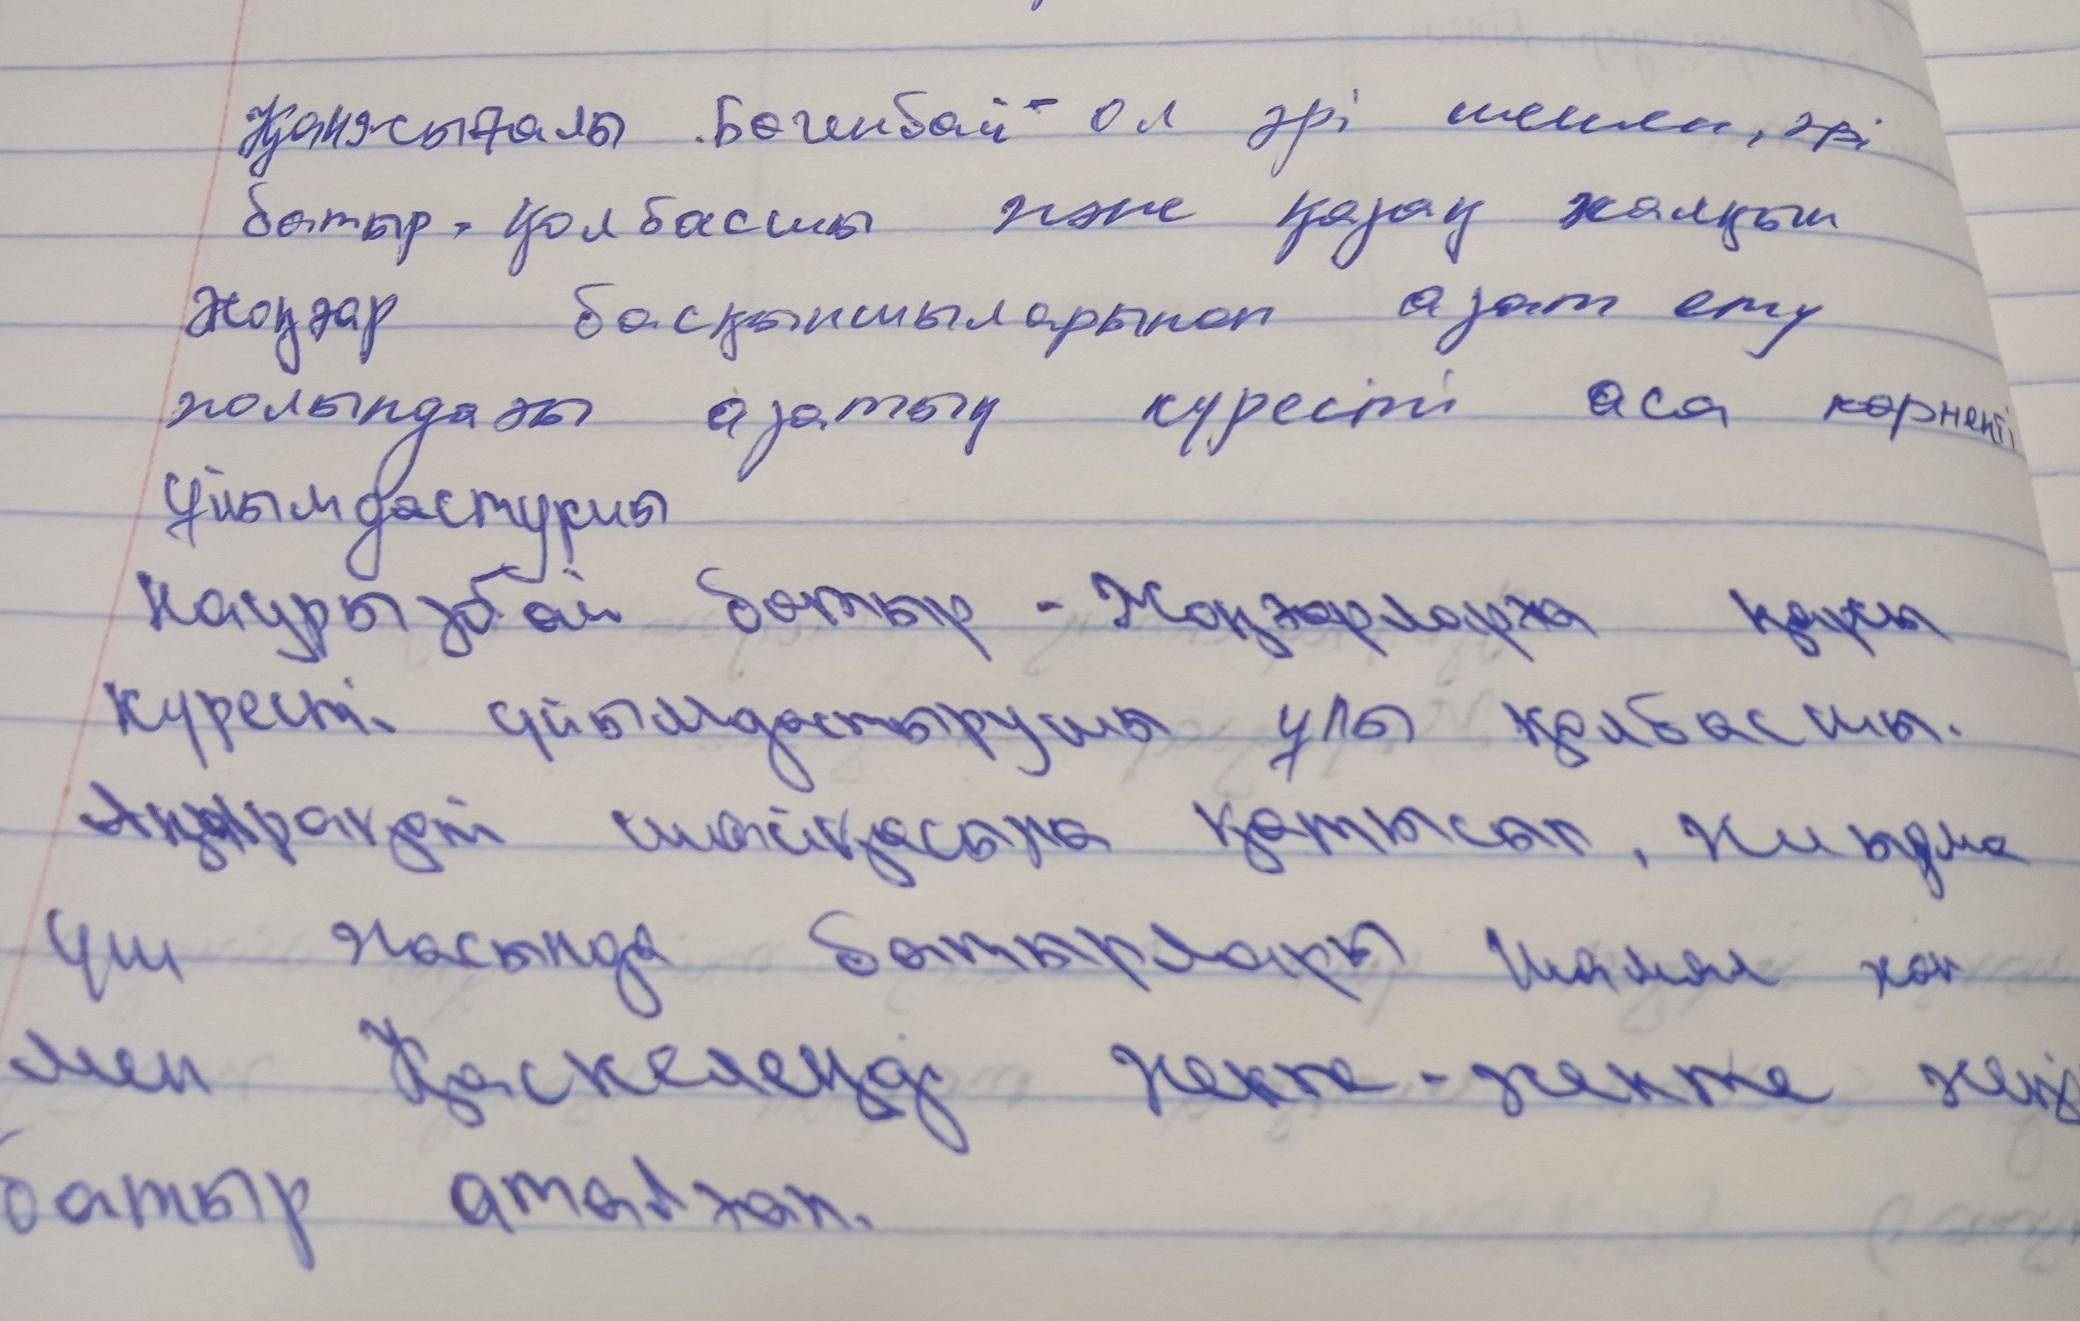 Қанжығалы Бөгенбай - ол әрі шешен, әрі
батыр, қолбасшы және қазақ халқын
Жоңғар басқыншыларынан азат ету
жолындағы азаттық күресті аса көрнекті
ұйымдастушы
Наурызбай батыр - Жоңғарларға қарсы
күресті ұйымдастырушы ұлы қолбасшы.
Аңырақай шайқасына қатысып, жиырма
үш жасында батырлары Шамал хан
мен Қаскелеңді жекпе-жекте
батыр аталған.